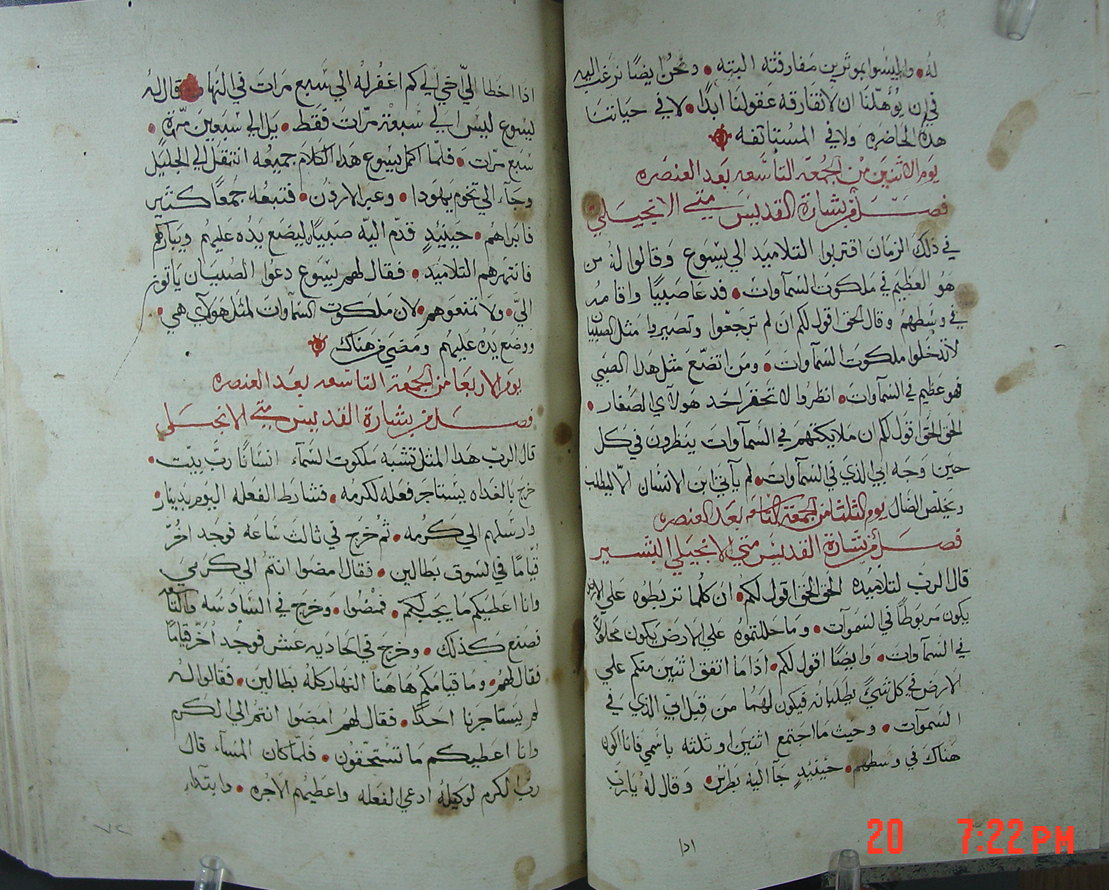 له • وليسوا بموثرين مفارقته البته • ونحن ايضًا نرغب اليه
في ان يؤهلنا ان لا تفارقه عقولنا ابدًا • لا في حياتنا
هذه الحاضره ولا في المستانفه
يوم الاثنين من الجمعه التاسعه بعد العنصره
فصل من بشارة القديس متي الانجيلي
في ذلك الزمان اقتربوا التلاميد الي يسوع وقالوا له من
هو العظيم في ملكوت السمآوات • فدعا صبيًا واقامه
في وسطهم وقال الحق اقول لكم ان لم ترجعوا وتصيروا مثل الصبيان
لا تدخلوا ملكوت السمآوات • ومن اتضع مثل هدا الصبي
فهو عظيم في السمآوات • انظروا لا تحقر احد هولاي الصغار •
الحق الحق اقول لكم ان ملايكتهم في السمآوات ينظرون في كل
حين وجه ابي الذي في السمآوات • لم يآتي ابن الانسان الا ليطلب
ويخلص الضال يوم الثلثا من الجمعة التاسعه بعد العنصره
فصل من بشارة القديس متي الانجيلي البشير
قال الرب لتلاميده الحق الحق اقول لكم • ان كلما تربطوه علي الارض
يكون مربوطًا في السموآت • وما حللتموه علي الارض يكون محلولاً
في السمآوات • وايضًا اقول لكم • اذا ما اتفق اثنين منكم علي
الارض في كل شيً يطلبانه فيكون لهما من قبل ابي الذي في
السموآت • وحيث ما اجتمع اثنين او ثلثه باسمي فانا اكون
هناك في وسطهم • حينيدٍ جآ اليه بطرس • وقال له يا رب
ادا
اذا اخطا الي اخي الي كم اغفر له الي سبع مرات في النهار • قال له
يسوع ليس الي سبعة مرّات فقط • بل الي سبعين مرّة •
سبع مرات • فلمّا اكمل يسوع هدا الكلام جميعه انتقل الي الجليل
وجآء الي تخوم يهودا • وعبر الاردن • فتبعه جمعًا كثير
فابراهم • حينيدٍ قدّم اليه صبيان ليضع يده عليهم ويباركهم
فانتهرهم التلاميد • فقال لهم يسوع دعوا الصبيان ياتون
اليّ • ولا تمنعوهم • لان ملكوت السمآوات لمثل هولاي هي •
ووضع يده عليهم ومضي من هناك
يوم الاربعا من الجمعة التاسعه بعد العنصره
فصل من بشارة القديس متي الانجيلي
قال الرب هدا المثل تشبه ملكوت السمآء انسانًا رب بيت •
خرج بالغداه يستاجر فعله لكرمه • فشارط الفعله اليوم بدينار •
وارسلهم الي كرمه • ثم خرج في ثالث ساعه فوجد اخرّ
قيامًا في السوق بطالين • فقال امضوا انتم الي كرمي
وانا اعطيكم ما يجب لكم • فمضوا • وخرج في السادسه والتاسعه
فصنع كذلك • وخرج في الحاديه عشر فوجد اخر قيامًا
فقال لهم • وما قيامكم هاهنا النهار كله بطالين • فقالوا له
لم يستاجرنا احدًا • فقال لهم امضوا انتم الي الكرم
وانا اعطيكم ما تستحقون • فلما كان المسآء قال
رب الكرم لوكيله ادعي الفعله واعطيهم الاجره • وابتداء
٧٢
20 7:22 PM